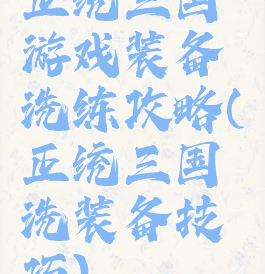 正统三国
游戏装备
洗练攻略(
正统三国
洗装备技
巧)